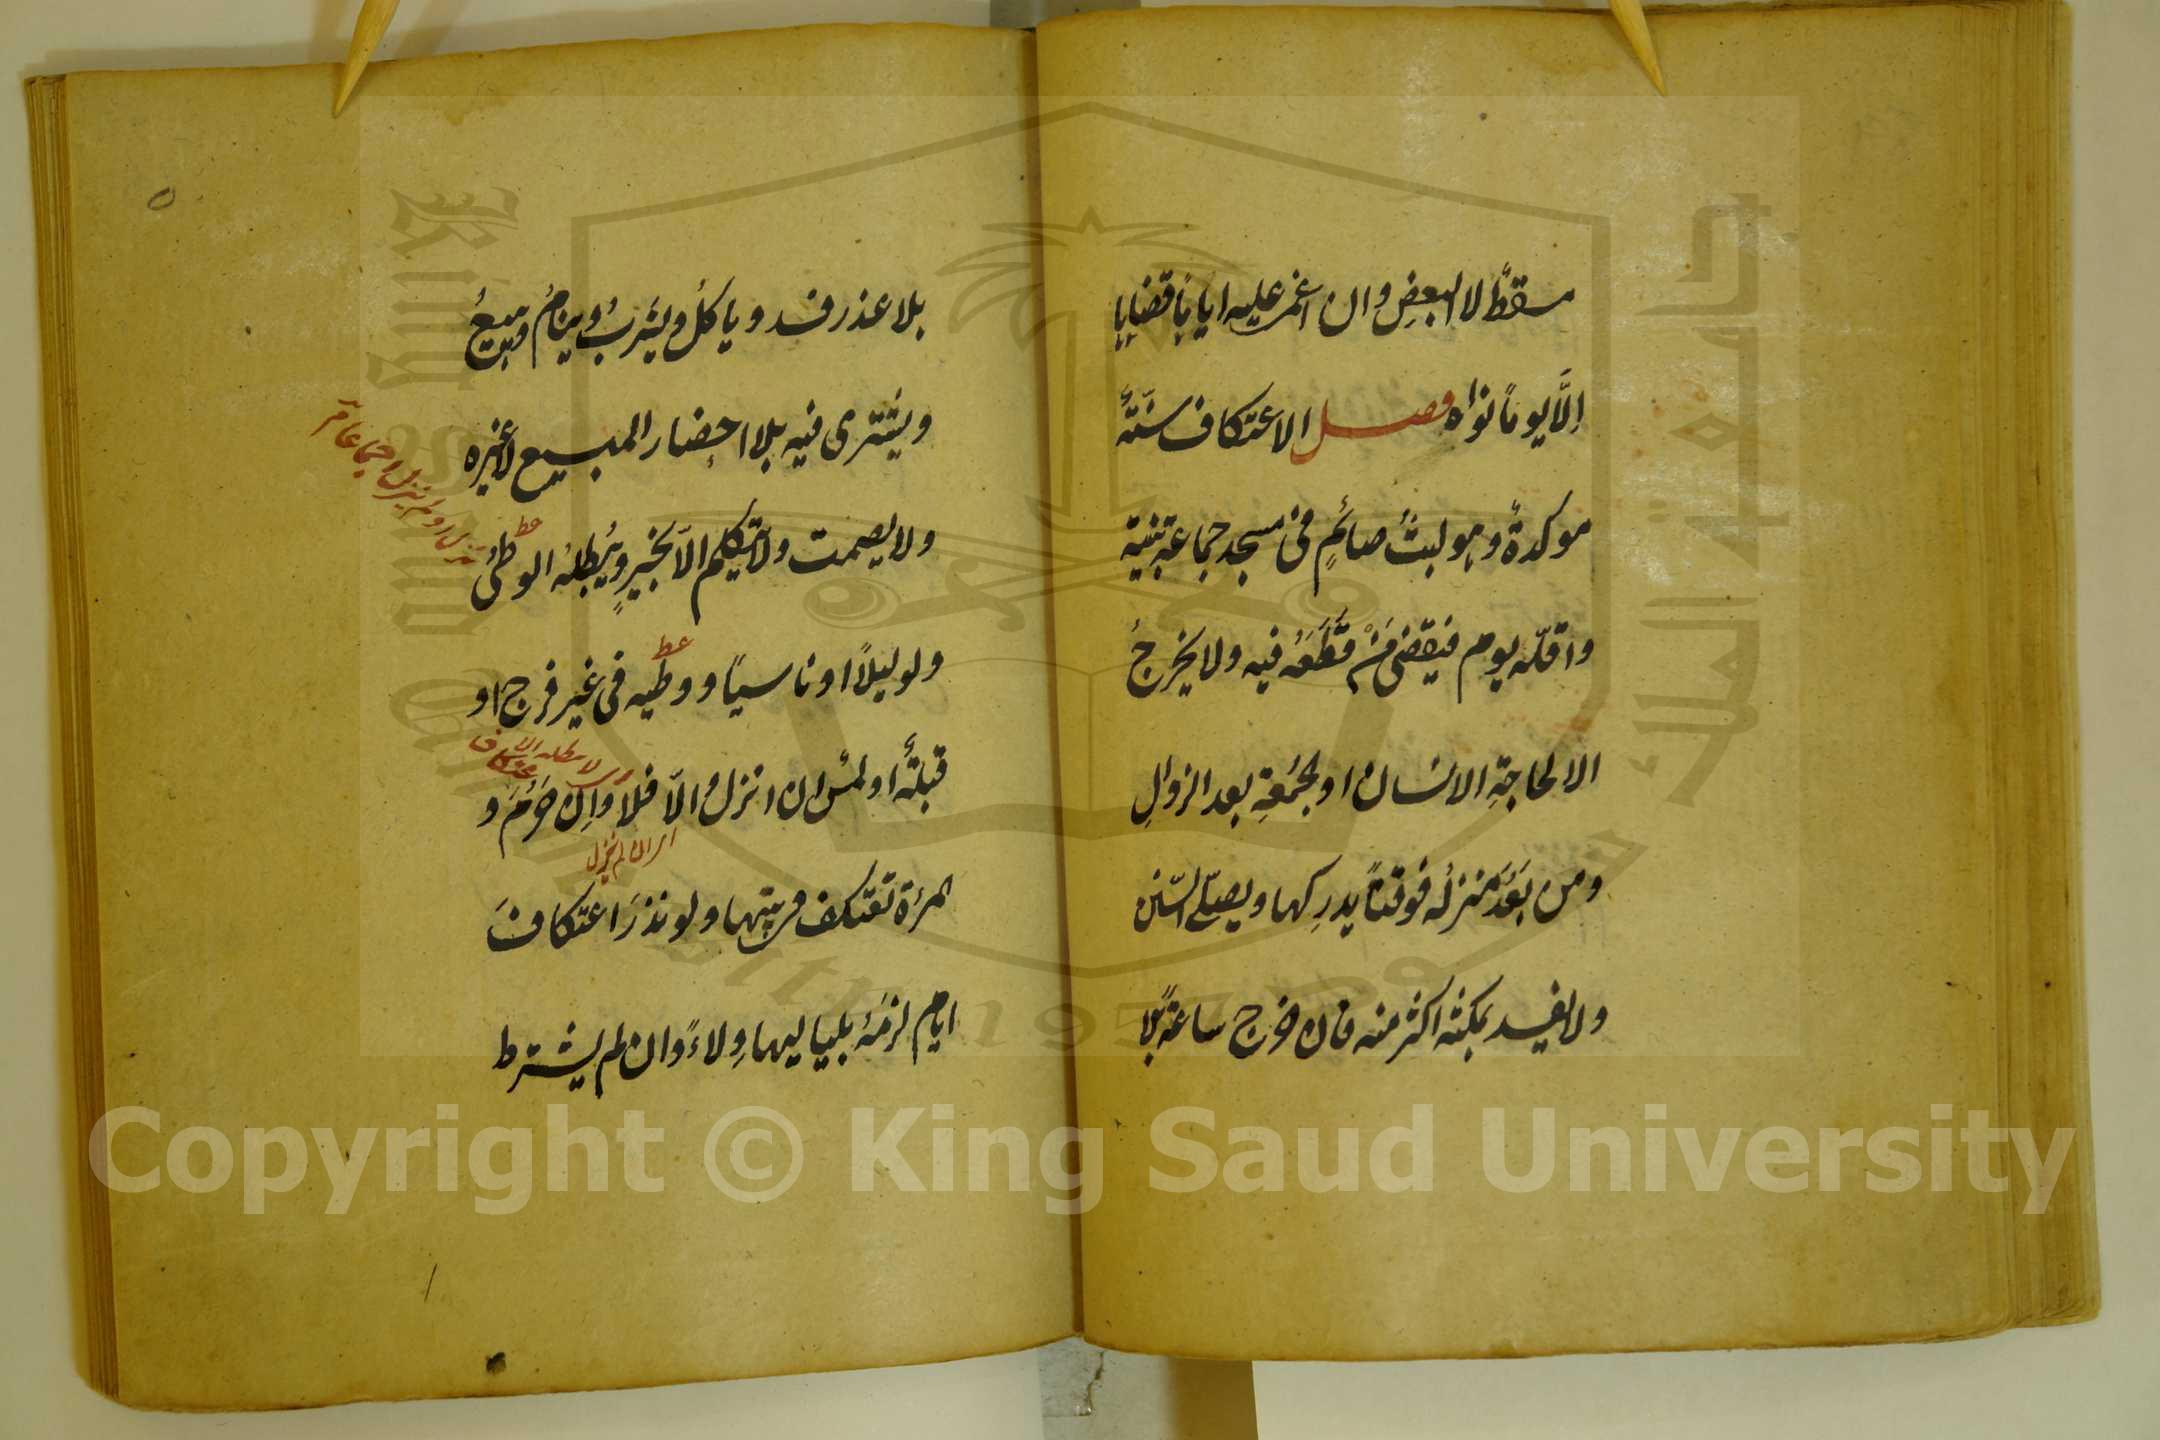 مسقطٌ لا البعضِ وان اغمى عليه اياماً قضاها
اِلَّا يوماً نواه فصل الاعتكاف سنّةٌ
موكدةٌ وهو لبثُ صائمٍ فى مسجد جماعة بنية
واقلّه يوم فيقضى مَنْ قَطَعَهُ فيه ولا يخرجُ
الا لحاجةِ الانسان او لجمُعةِ بعد الزوالِ
ومن بَعُدَ منزلُه فوقتاً يدرِكها ويصلّى السّنن
ولا يفسد بمكثه اكثر منه فان خرج ساعةً بلا
بلا عذر فسد وياكلُ ويشربُ وينامُ ويبيعُ
ويشترى فيه بلا احضار المبيع لا غيره
ولا يصمت ولا يتكلم الّا بخيرٍ ويُبْطلُه الوطئُ
ولو ليلاً او ناسياً ووطيه فى غير فرج او
قبلةٌ او لمسٌ ان انزل والّا فلا وان حَرُمَ و
المرءة تعتكف فى بيتها ولو نذرَ اعتكافَ
ايام لزمَهُ بلياليها وِلاءً وان لم يشترط
انزل او لم ينزل
عط
عط
لا يبطله الاعتكاف
اى ان لم ينزل
Copyright © King Saud University